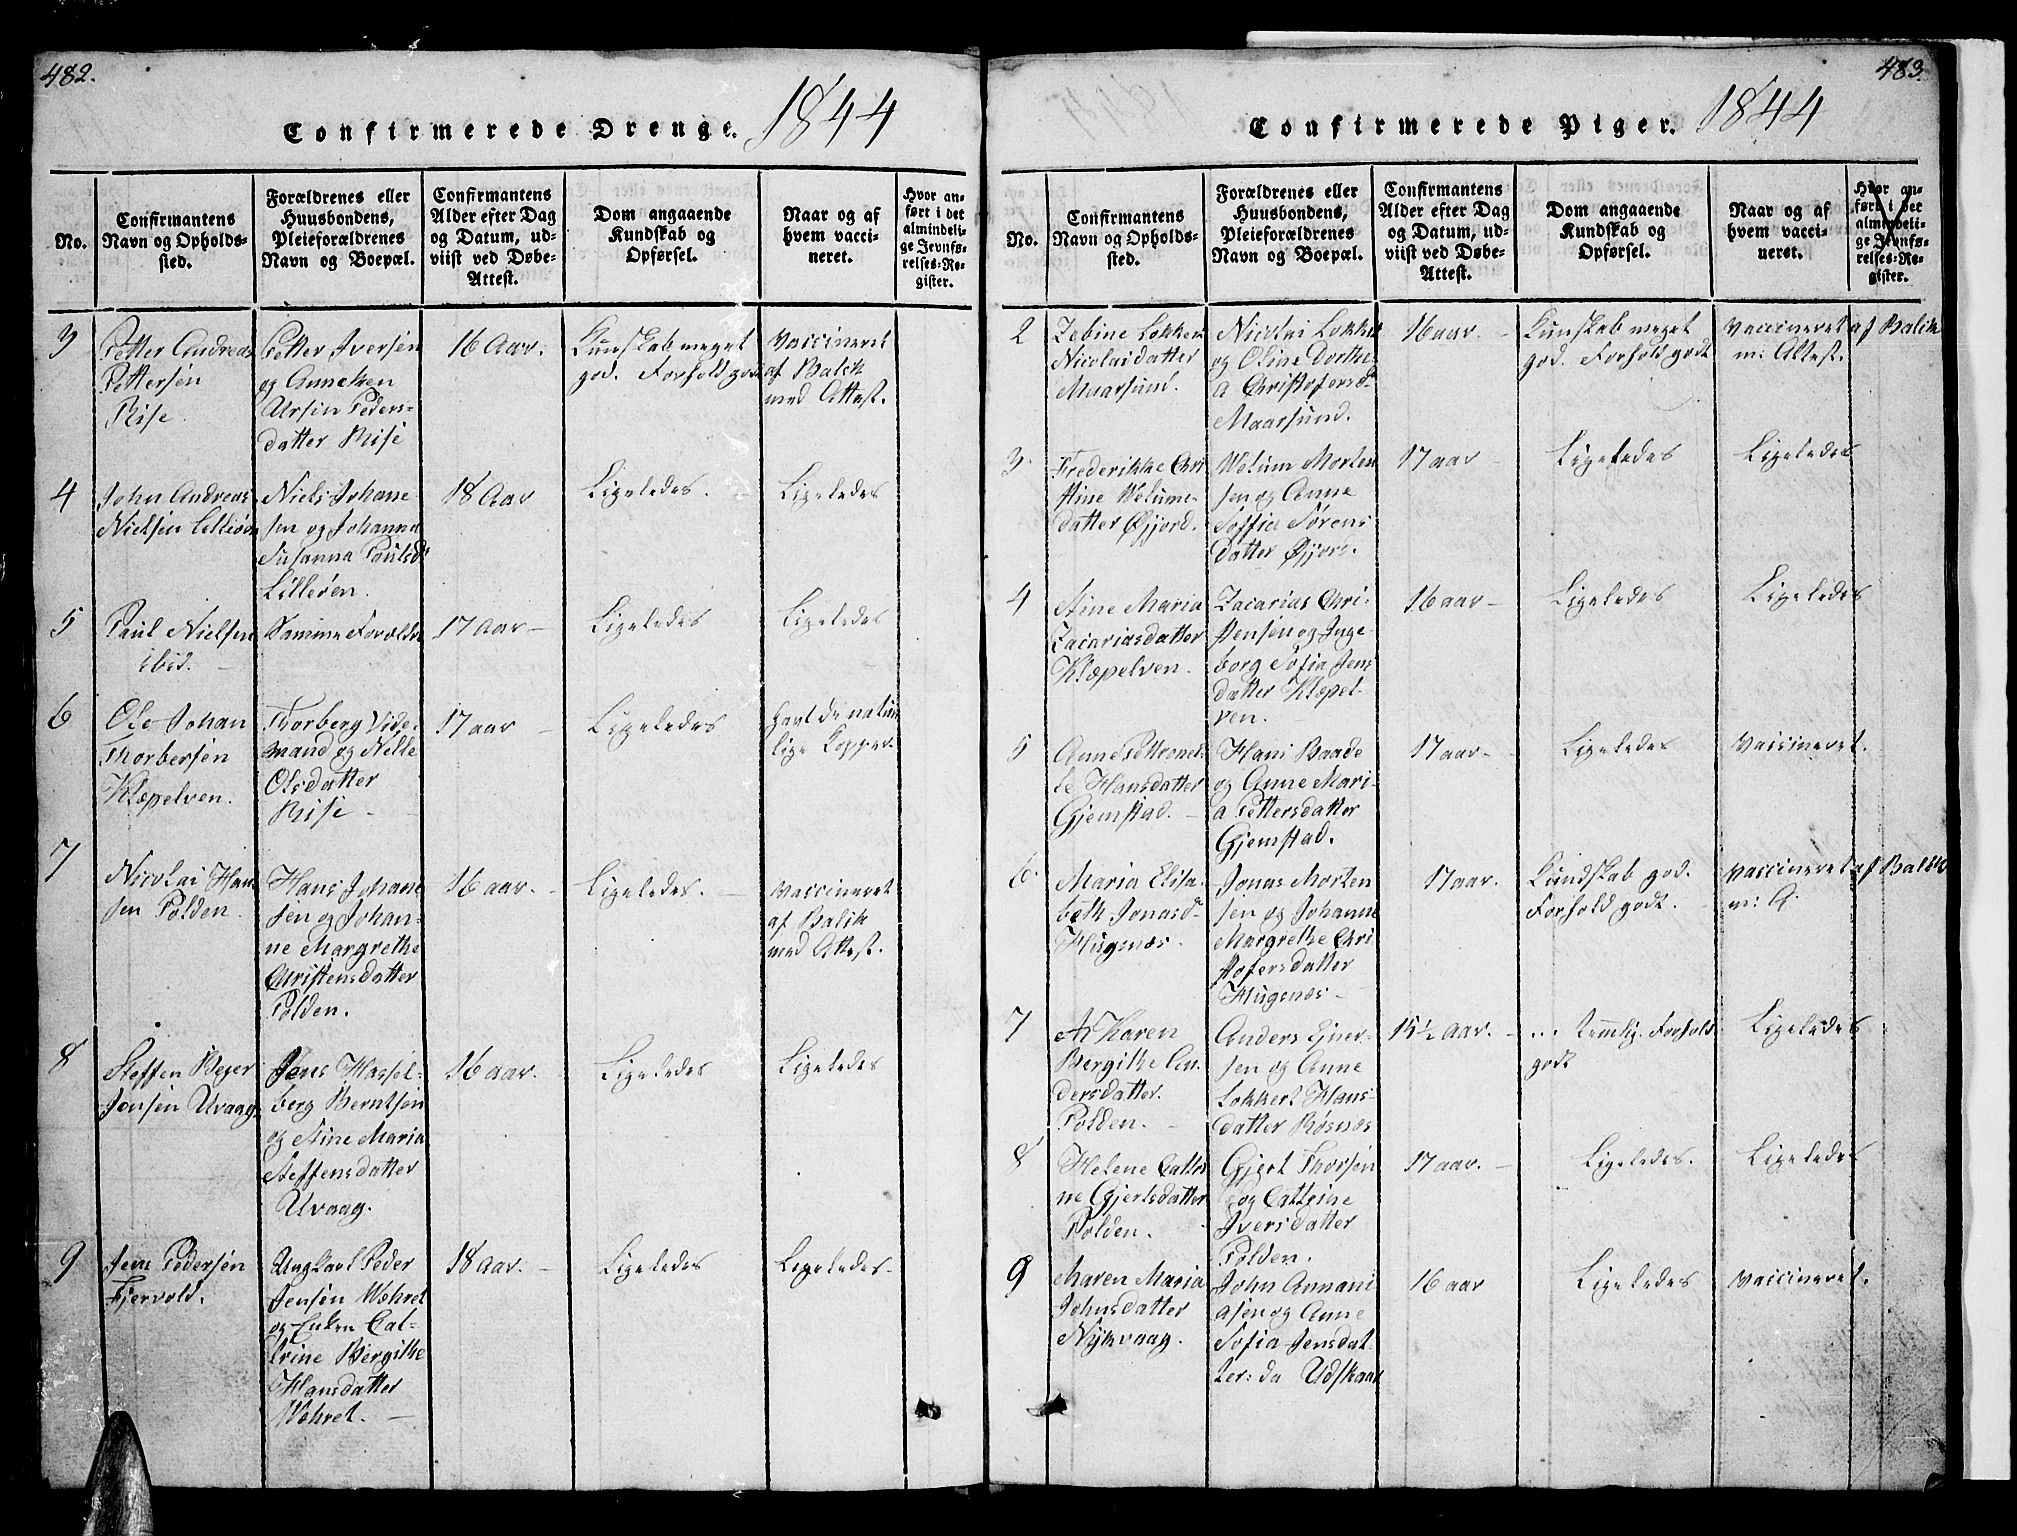 482.
Confirmerede Drenge. 1844
No.
Confirmantens
Navn og Opholds-
sted.
Forældrenes eller
Huusbondens,
Pleieforældrenes
Navn og Boepæl.
Confirmantens
Alder efter Dag
og Datum, ud-
viist ved Døbe-
Attest.
Dom angaaende
Kundskab og
Opførsel.
Naar og af
hvem vacci-
neret.
Hvor an-
ført i det
almindeli-
ge Jevnfø-
relses-Re-
gister.
3
Petter Andreas
Pettersen
Riise
Petter Iversen
og Anneken
Ursin Peders-
datter Riise
16 Aar.
Kunskab meget
god. Forhold godt
Vaccineret
af Balik
med Attest.
4
John Andreas
Nielsen Lilleøen
Niels Johane
sen og Johanna
Susanna Poulsd
Lilleøen.
18 Aar
Ligeledes.
Ligeledes
5
Paul Nielsen
ibid.
Samme Forældre
17 Aar
Ligeledes
Ligeledes
6
Ole Johan
Thorbersen
Klæpelven.
Thorberg Vide-
mand og Nille
Olsdatter
Riise
17 aar
Ligeledes
havt de natur
lige Kopper.
7
Nicolai Han
sen Polden.
Hans Johane
sen og Johan-
ne Margrethe
Christensdatter
Polden.
16 aar.
Ligeledes.
vaccineret
af Balik
med Attest.
8
Steffen Beyer
Jensen Uvaag.
Jens Hassel-
berg Berntsen
og Stine Maria
Steffensdatter
Uvaag.
16 aar.
Ligeledes
Ligeledes
9
Jens Pedersen
Fiervold.
Ungkarl Peder
Jensen Wæhret
og Enken Cat-
trine Bergithe
Hansdatter
Wæhret.
18 Aar.
Ligeledes
Ligeledes
483.
Confirmerede Piger. 1844
No.
Confirmantens
Navn og Opholds-
sted.
Forældrenes eller
Huusbondens,
Pleieforældrenes
Navn og Boepæl.
Confirmantens
Alder efter Dag
og Datum, ud-
viist ved Døbe-
Attest.
Dom angaaende
Kundskab og
Opførsel.
Naar og af
hvem vacci-
neret.
Hvor an-
ført i det
almindeli-
ge Jevnfø-
relses-Re-
gister.
2
Zebine Lokken
Nicolaidatter
Maarsund.
Nicolai Lokket
og Oline Dorthe-
a Christofersd
Maarsund.
16 aar.
Kunskab meget
god. Forhold godt
vaccineret af Balik
m: Attest.
3
Frederikke Chri
stine Welums-
datter Øyjord.
Welum Morten
sen og Anne
Soffia Sørens
datter Øyjord.
17 aar
Ligeledes
Ligeledes
4
Stine Maria
Zacariasdatter
Klæpelven.
Zacarias Chri-
stensen og Inge-
borg Sofia Jens
datter Klæpel-
ven.
16 aar
Ligeledes
Ligeledes
5
Anne Petronel-
le Hansdatter
Gjemstad.
Hans Baade
og Anne Mari-
a Pettersdatter
Gjemstad.
17 aar
Ligeledes
vaccineret.
6.
Maria Elisa-
beth Jonasd-
Hugenæs.
Jonas Morten
sen og Johanne
Margrethe Chri
stofersdatter
Hugenæs
17 aar.
Kundskab god.
Forhold godt.
vaccineret af Balik
m: A.
7
Karen
Bergithe An-
dersdatter.
Polden.
Anders Ejner-
sen og Anne
Lokkert Hans-
datter Røsnæs
15½ Aar.
... temlig. Forhold
godt
Ligeledes
8
Helene Cathri
ne Gjertsdatter
Polden.
Gjert Thorsen
og Cattrine
Iversdatter
Polden.
17 aar.
Ligeledes.
Ligeledes
9
Maren Maria
Johnsdatter
Nykvaag.
John Annani
asen og Anne
Sofia Jensdat
ter: da Udskaar
16 aar
Ligeledes
vaccineret.